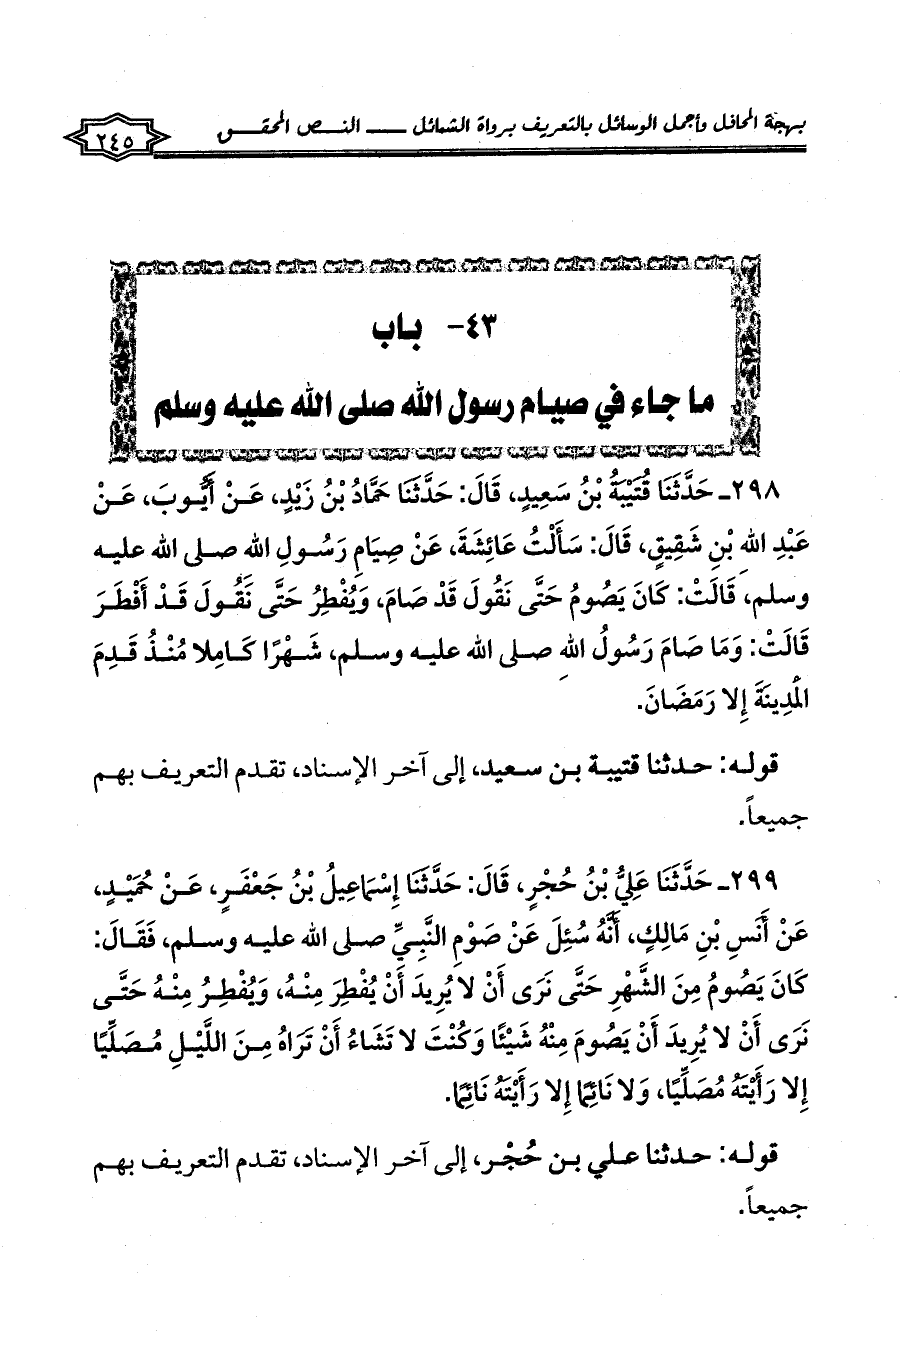 بهجة المحافل وأجمل الوسائل بالتعريف برواة الشمائل ــــ النص المحقق
٢٤٥
٤٣- باب
ما جاء في صيام رسول الله صلى الله عليه وسلم
٢٩٨ـ حَدَّثَنَا قُتَيْبَةُ بْنُ سَعِيدٍ، قَالَ: حَدَّثَنَا حَمَّادُ بْنُ زَيْدٍ، عَنْ أَيُّوبَ، عَنْ
عَبْدِ اللهِ بْنِ شَقِيقٍ، قَالَ: سَأَلْتُ عَائِشَةَ، عَنْ صِيَامِ رَسُولِ اللهِ صلى الله عليه
وسلم، قَالَتْ: كَانَ يَصُومُ حَتَّى نَقُولَ قَدْ صَامَ، وَيُفْطِرُ حَتَّى نَقُولَ قَدْ أَفْطَرَ
قَالَتْ: وَمَا صَامَ رَسُولُ اللهِ صلى الله عليه وسلم، شَهْرًا كَامِلا مُنْذُ قَدِمَ
الْمَدِينَةَ إِلا رَمَضَانَ.
قوله: حدثنا قتيبة بن سعيد، إلى آخر الإسناد، تقدم التعريف بهم
جميعاً.
٢٩٩ـ حَدَّثَنَا عَلِيُّ بْنُ حُجْرٍ، قَالَ: حَدَّثَنَا إِسْمَاعِيلُ بْنُ جَعْفَرٍ، عَنْ حُمَيْدٍ،
عَنْ أَنَسِ بْنِ مَالِكٍ، أَنَّهُ سُئِلَ عَنْ صَوْمِ النَّبِيِّ صلى الله عليه وسلم، فَقَالَ:
كَانَ يَصُومُ مِنَ الشَّهْرِ حَتَّى نَرَى أَنْ لا يُرِيدَ أَنْ يُفْطِرَ مِنْهُ، وَيُفْطِرُ مِنْهُ حَتَّى
نَرَى أَنْ لا يُرِيدَ أَنْ يَصُومَ مِنْهُ شَيْئًا وَكُنْتَ لا تَشَاءُ أَنْ تَرَاهُ مِنَ اللَّيْلِ مُصَلِّيًا
إِلا رَأَيْتَهُ مُصَلِّيًا، وَلا نَائِمًا إِلا رَأَيْتَهُ نَائِمًا.
قوله: حدثنا علي بن حُجْر، إلى آخر الإسناد، تقدم التعريف بهم
جميعاً.